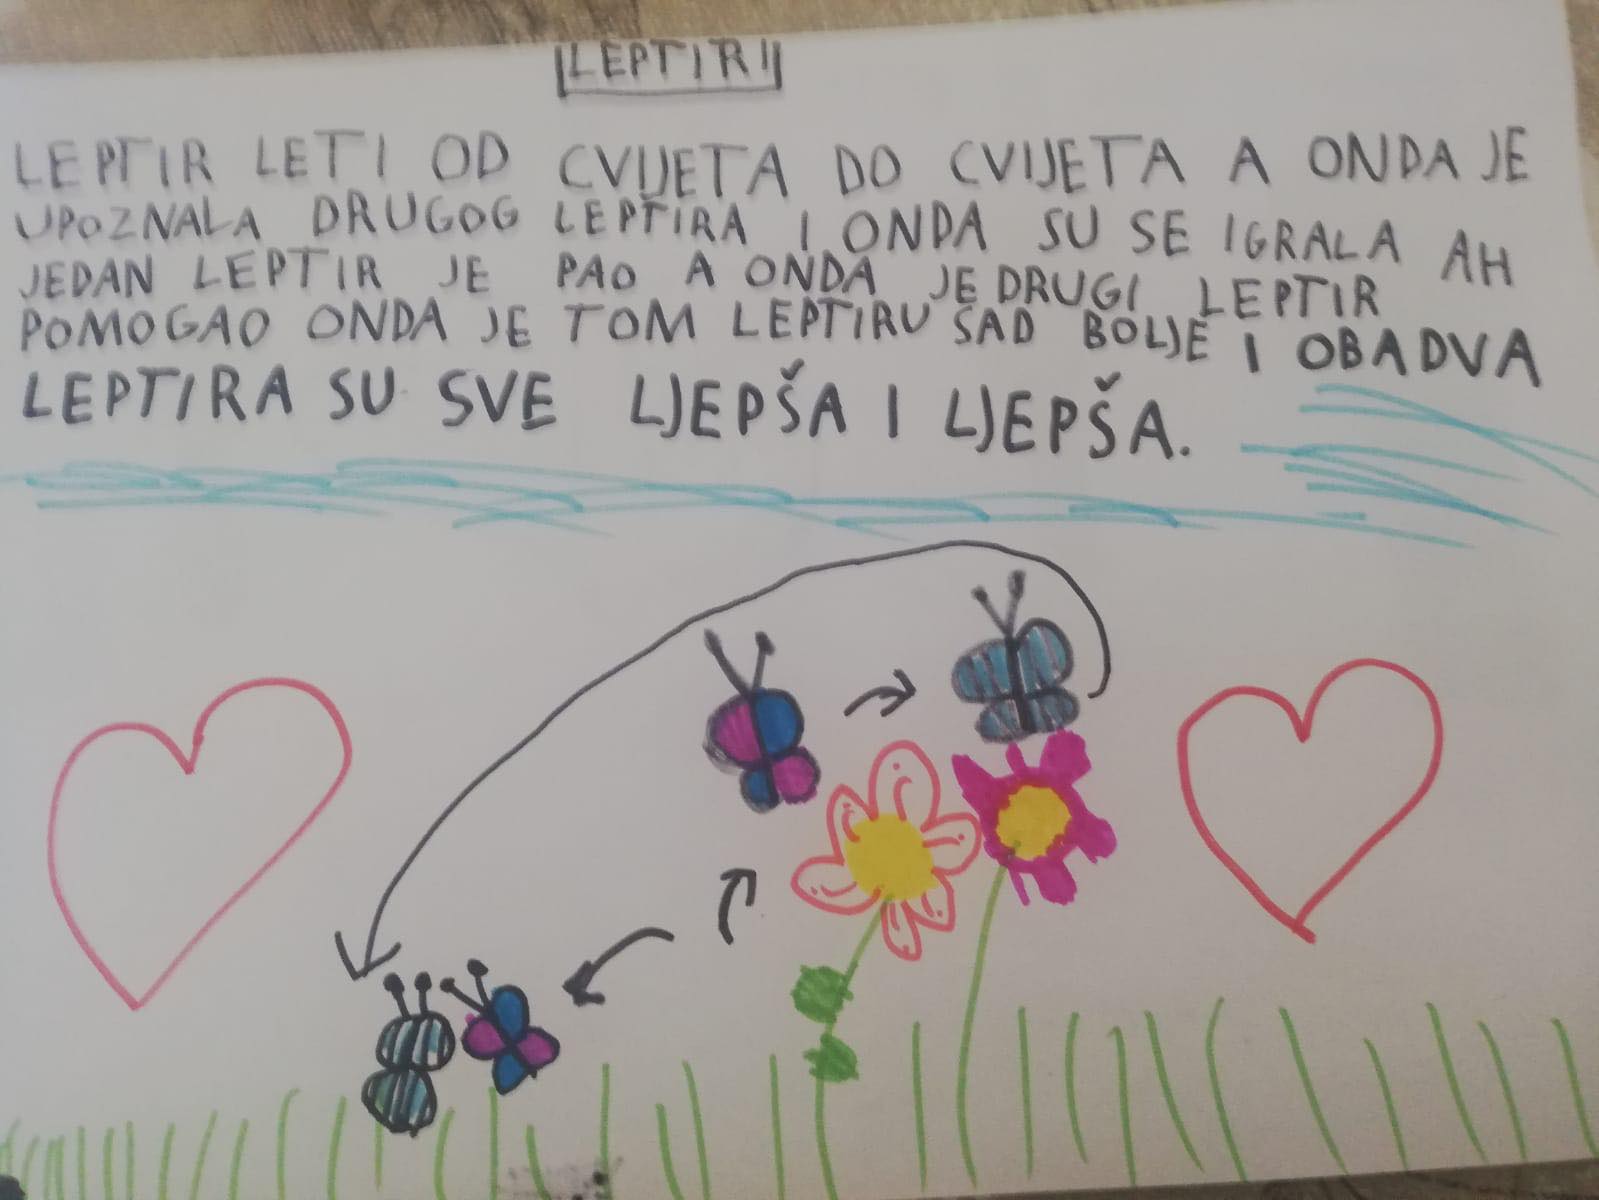 LEPTIRI
LEPTIR LETI OD CVIJETA DO CVIJETA A ONDA JE
UPOZNALA DRUGOG LEPTIRA I ONDA SU SE IGRALA AH
JEDAN LEPTIR JE PAO A ONDA JE DRUGI LEPTIR
POMOGAO ONDA JE TOM LEPTIRU SAD BOLJE I OBADVA
LEPTIRA SU SVE LJEPŠA I LJEPŠA.